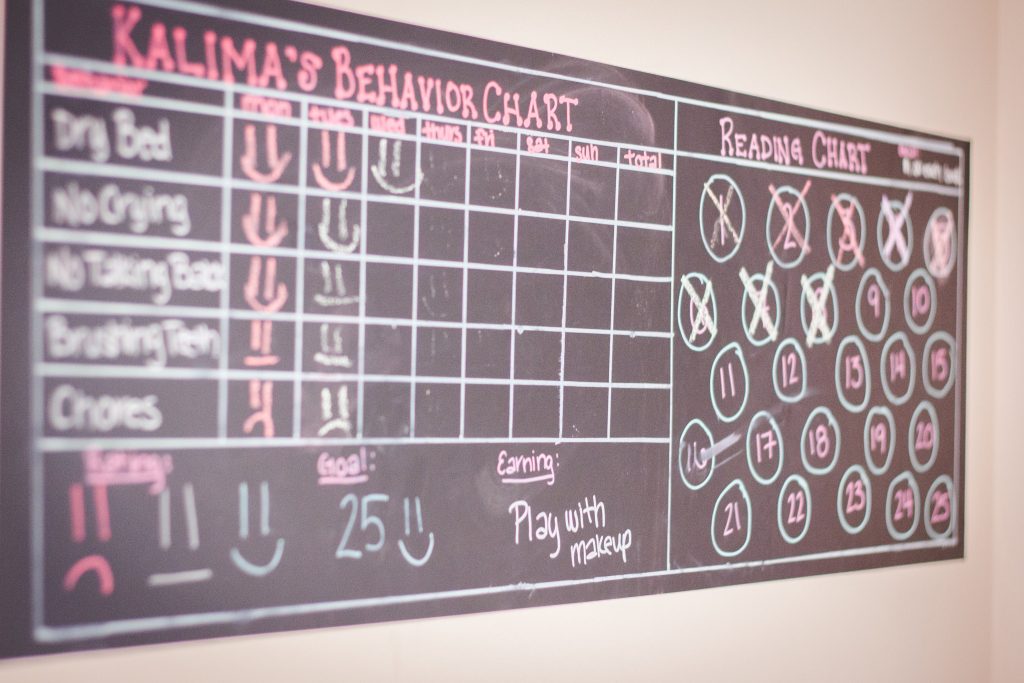 KALIMA'S BEHAVIOR CHART
Behavior mon tues wed thurs fri sat sun total
Dry Bed
No Crying
No Talking Back
Brushing Teeth
Chores
Rating: Goal: Earning:
25
Play with
makeup
READING CHART
1 2 3
9 10
11 12 13 14 15
16 17 18 19 20
21 22 23 24 25